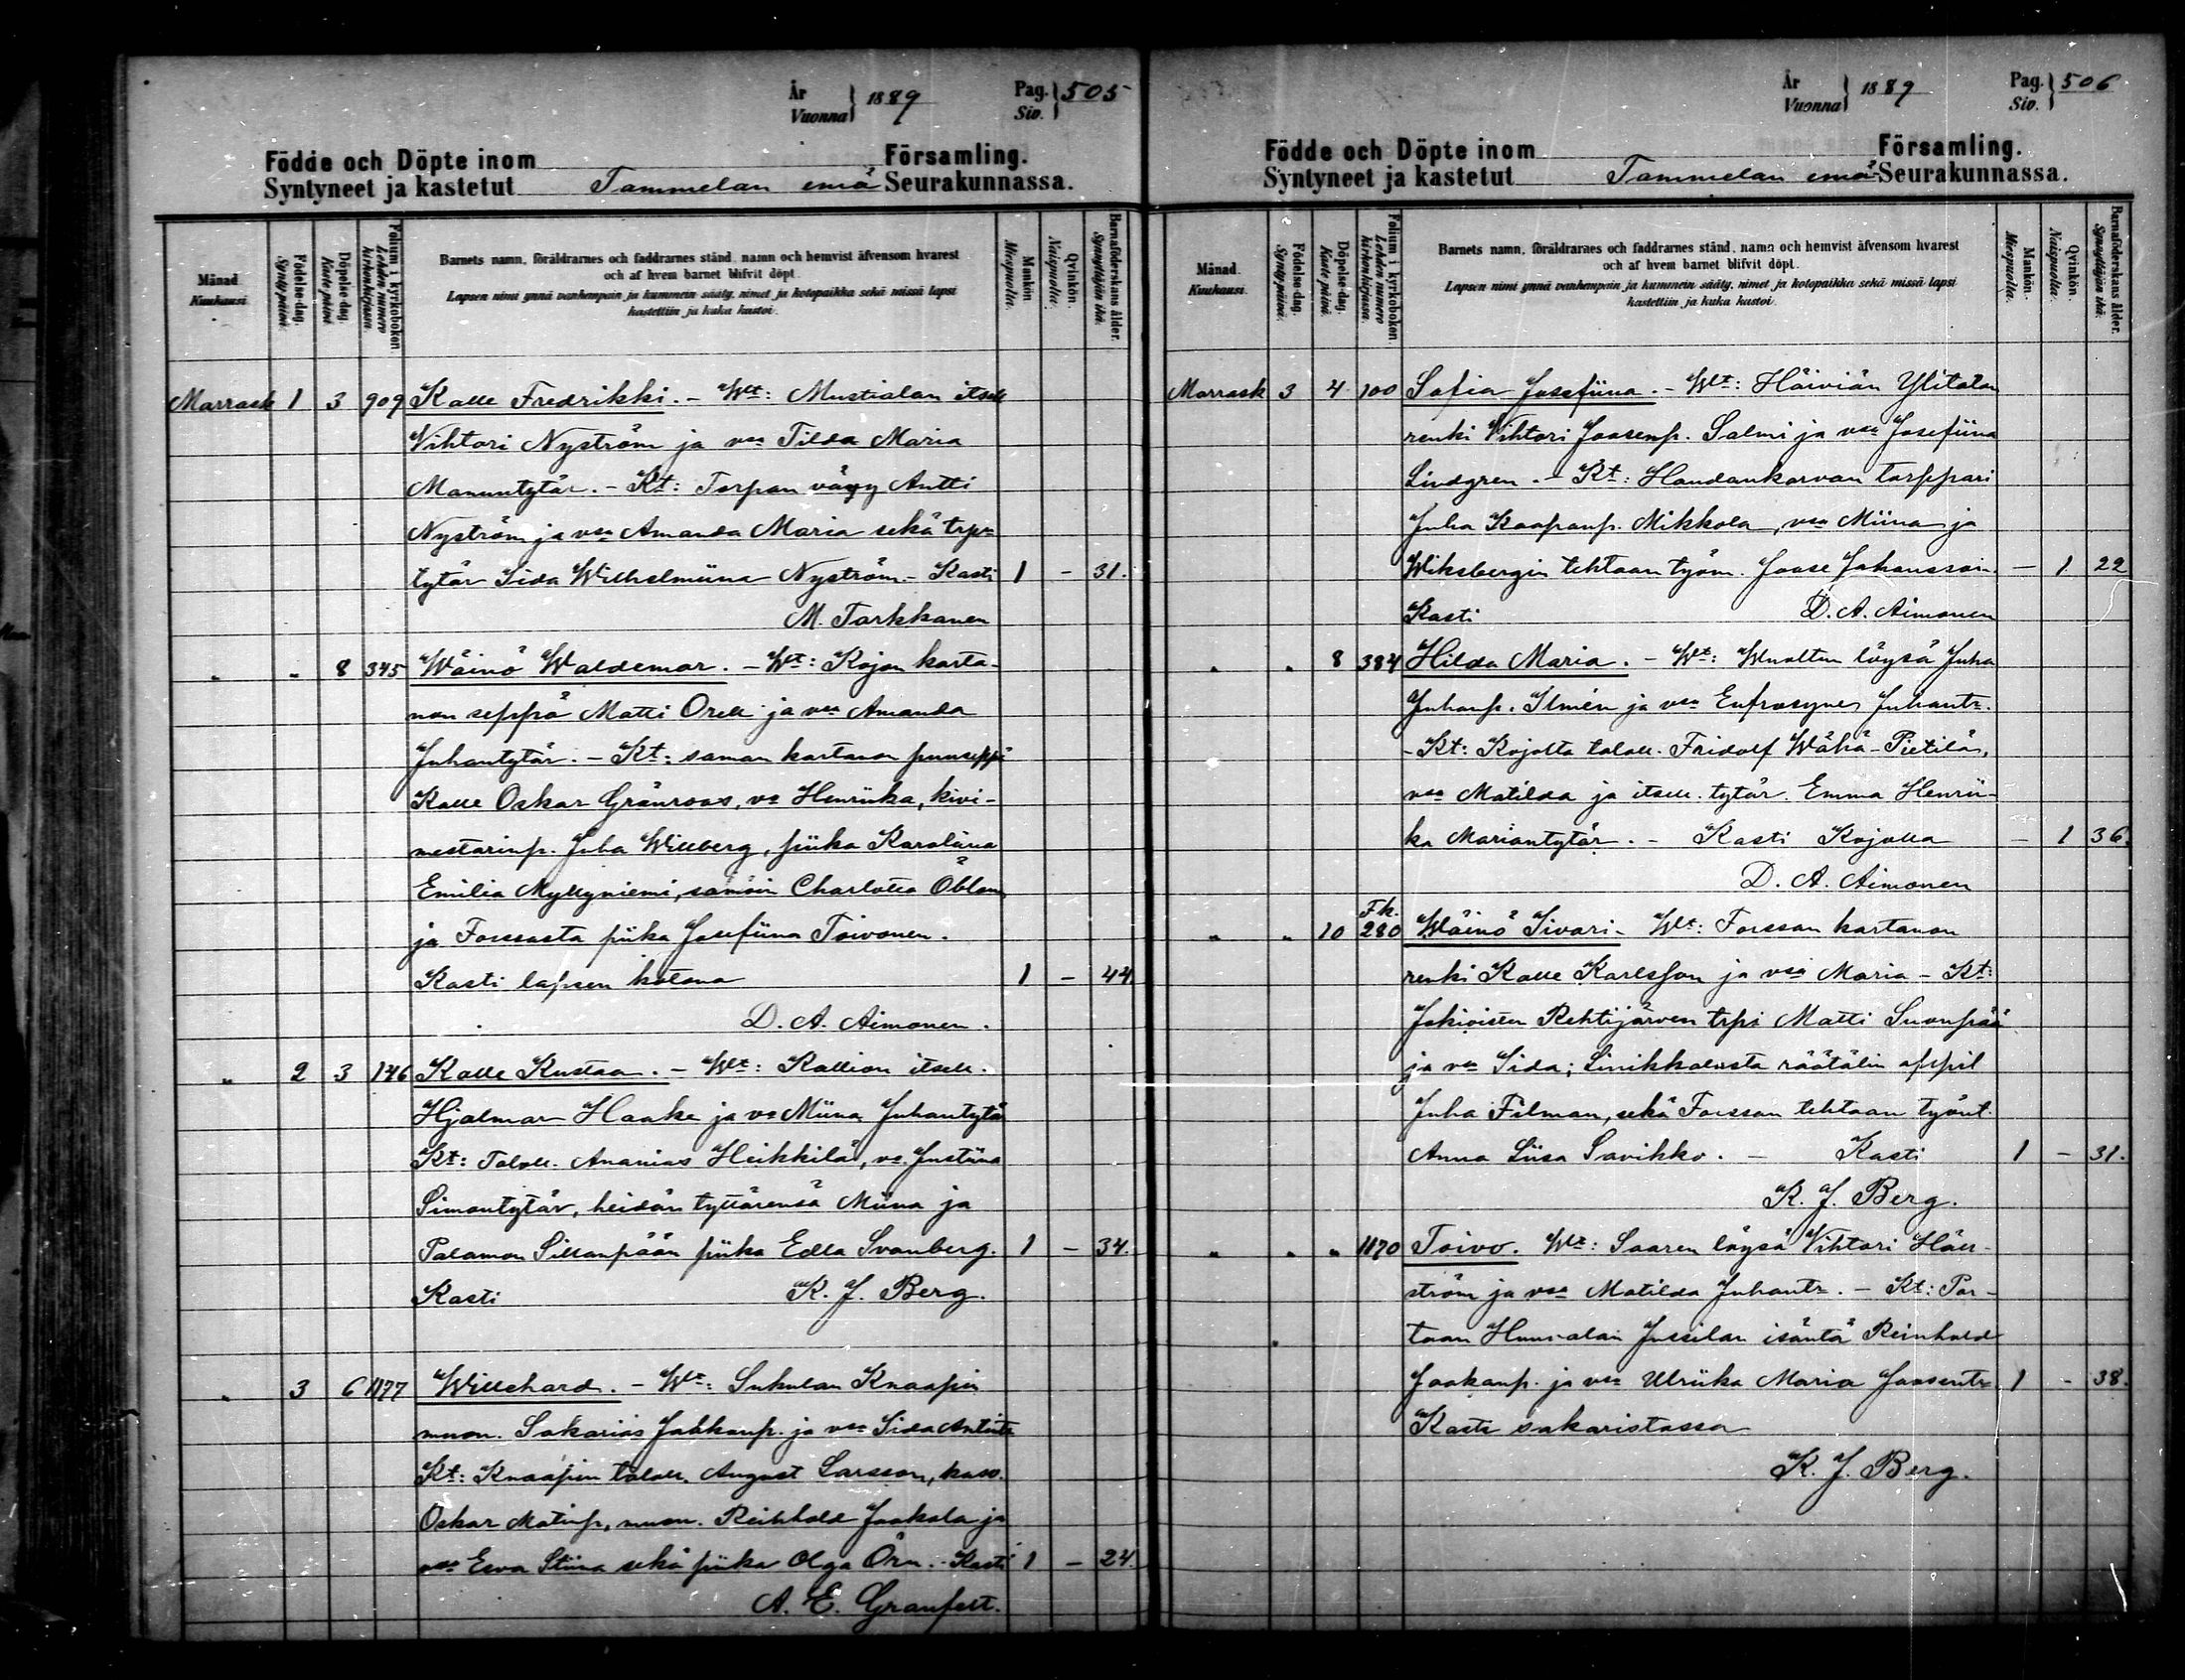 År
Vuonna } 1889
Pag.
Siv. } 505
Födde och Döpte inom Församling.
Syntyneet ja kastetut Tammelan emä Seurakunnassa.
Månad. Kuukausi.
Födelse-dag. Synty päivä.
Döpelse-dag. Kaste päivä.
Folium i kyrkoboken Lehden numero kirkonkirjassa.
Barnets namn, föräldrarnes och faddrarnes stånd, namn och hemvist äfvensom hvarest
och af hvem barnet blifvit döpt.
Lapsen nimi ynnä vanhempain ja kummein sääty, nimet ja kotopaikka sekä missä lapsi
kastettiin ja kuka kastoi.
Mankön. Miespuolta.
Qvinkön. Naispuolta.
Barnaföderskans ålder. Synnyttäjän ikä.
Marrask 1 3 909 Kalle Fredrikki. - Wt: Mustialan itsell
Vihtori Nyström ja vsa Tilda Maria
Manuntytär. - Kt: Torpan vävy Antti
Nyström ja vsa Amanda Maria sekä trpn
tytär Iida Wilhelmiina Nyström - Kasti 1 - 31.
M. Tarkkanen
" " 8 345 Wäinö Waldemar. - Wt: Kojon karta-
non seppä Matti Orell ja vsa Amanda
Juhantytär. - Kt: saman kartanon puuseppä
Kalle Oskar Grönroos, vs Henriika, kivi-
mestarinp. Juha Willberg, piika Karoliina
Emilia Myllyniemi, samoin Charlotta Öblom
ja Forssasta piika Josefiina Toivonen.
Kasti lapsen kotona 1 - 44.
D. A. Aimonen.
" 2 3 146 Kalle Kustaa. - Wt: Kallion itsell.
Hjalmar Haake ja vs Miina Juhantytär
Kt: Taloll. Ananias Heikkilä, vs. Justiina
Simontytär, heidän tyttärensä Miina ja
Palamon Sillanpään piika Edla Svanberg. 1 - 34.
Kasti K. J. Berg.
" 3 6 1177 Willehard. - Wt: Sukulan Knaapin
muon. Sakarias Jahkanp. ja vsa Iida Antintr
Kt: Knaapin taloll. August Larsson, kasv.
Oskar Matinp, muon. Reinhold Jaakola ja
vsa Eeva Stiina sekä piika Olga Örn. - Kasti 1 - 24.
A. E. Granfelt.
År
Vuonna } 1889
Pag.
Siv. } 506
Födde och Döpte inom Församling.
Syntyneet ja kastetut Tammelan emä Seurakunnassa.
Månad. Kuukausi.
Födelse-dag. Synty päivä.
Döpelse-dag. Kaste päivä.
Folium i kyrkoboken. Lehden numero kirkonkirjassa.
Barnets namn, föräldrarnes och faddrarnes stånd, namn och hemvist äfvensom hvarest
och af hvem barnet blifvit döpt.
Lapsen nimi ynnä vanhempain ja kummein sääty, nimet ja kotopaikka sekä missä lapsi
kastettiin ja kuka kastoi.
Mankön. Miespuolta.
Qvinkön. Naispuolta.
Barnaföderskans ålder. Synnyttäjän ikä.
Marrask 3 4 100 Sofia Josefiina. - Wt: Häiviän Ylitalon
renki Vihtori Joosenp. Salmi ja vsa Josefiina
Lindgren. - Kt: Haudankorvan torppari
Juha Kaapanp. Mikkola, vsa Miina ja
Wiksbergin tehtaan työm. Joose Johansson. - 1 22
Kasti D. A. Aimonen
" " 8 384 Hilda Maria. - Wt: Wuoltun löysä Juha
Juhanp. Ilmén ja vsa Eufrosyne Juhantr.
- Kt: Kojolta taloll. Fridolf Wähä-Pietilä,
vsa Matilda ja itsell. tytär Emma Henrii-
ka Mariantytär. - Kasti Kojolla - 1 36.
D. A. Aimonen
" " 10 Fk. 280 Wäinö Iivari - Wt: Forssan kartanon
renki Kalle Karlsson ja vsa Maria - Kt:
Jokioisten Rehtijärven trpi Matti Suonpää
ja vsa Iida; Linikkalasta räätälin oppil
Juha Filman, sekä Forssan tehtaan työnt.
Anna Liisa Savikko. - Kasti 1 - 31.
K. J. Berg.
" " " 1170 Toivo. Wt: Saaren löysä Vihtori Häll-
ström ja vsa Matilda Juhantr. - Kt: Por-
taan Jussilan isäntä Reinhold
Jaakanp. ja vsa Ulriika Maria Joosentr 1 - 38.
Kasti sakaristassa
K. J. Berg.